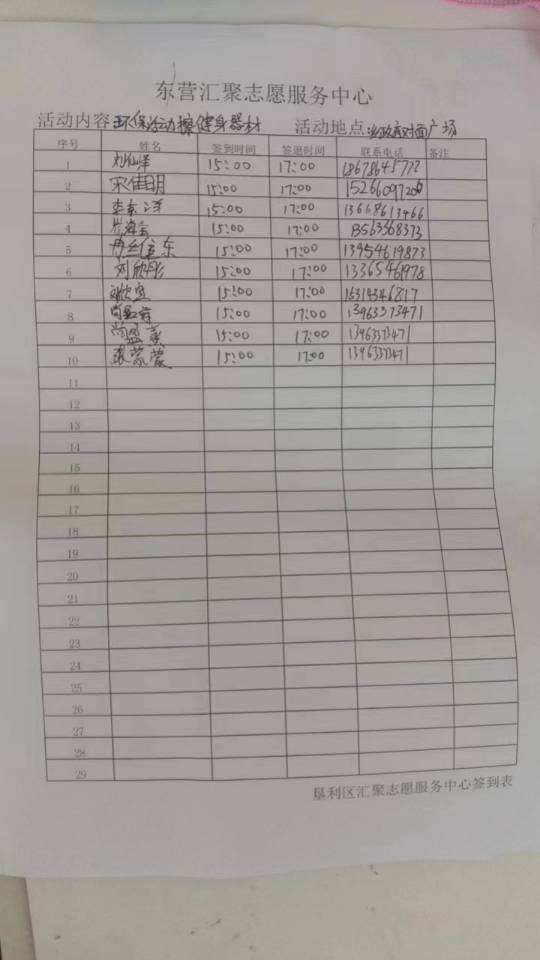 东营汇聚志愿服务中心
活动内容:环保活动擦健身器材 活动地点:政府对面广场
序号 姓名 签到时间 签退时间 联系电话 备注
1 15:00 17:00
2 宋佳明 15:00 17:00 15266097206
3 15:00 17:00 13668613466
4 15:00 17:00
5 15:00 17:00 13954619873
6 刘欣彤 15:00 17:00 13365461978
7 15:00 17:00
8 15:00 17:00 13963373471
9 尚盈英 15:00 17:00 13963373471
10 张蒙蒙 15:00 17:00 13963373471
11
12
13
14
15
16
17
18
19
20
21
22
23
24
25
26
27
28
29
垦利区汇聚志愿服务中心签到表